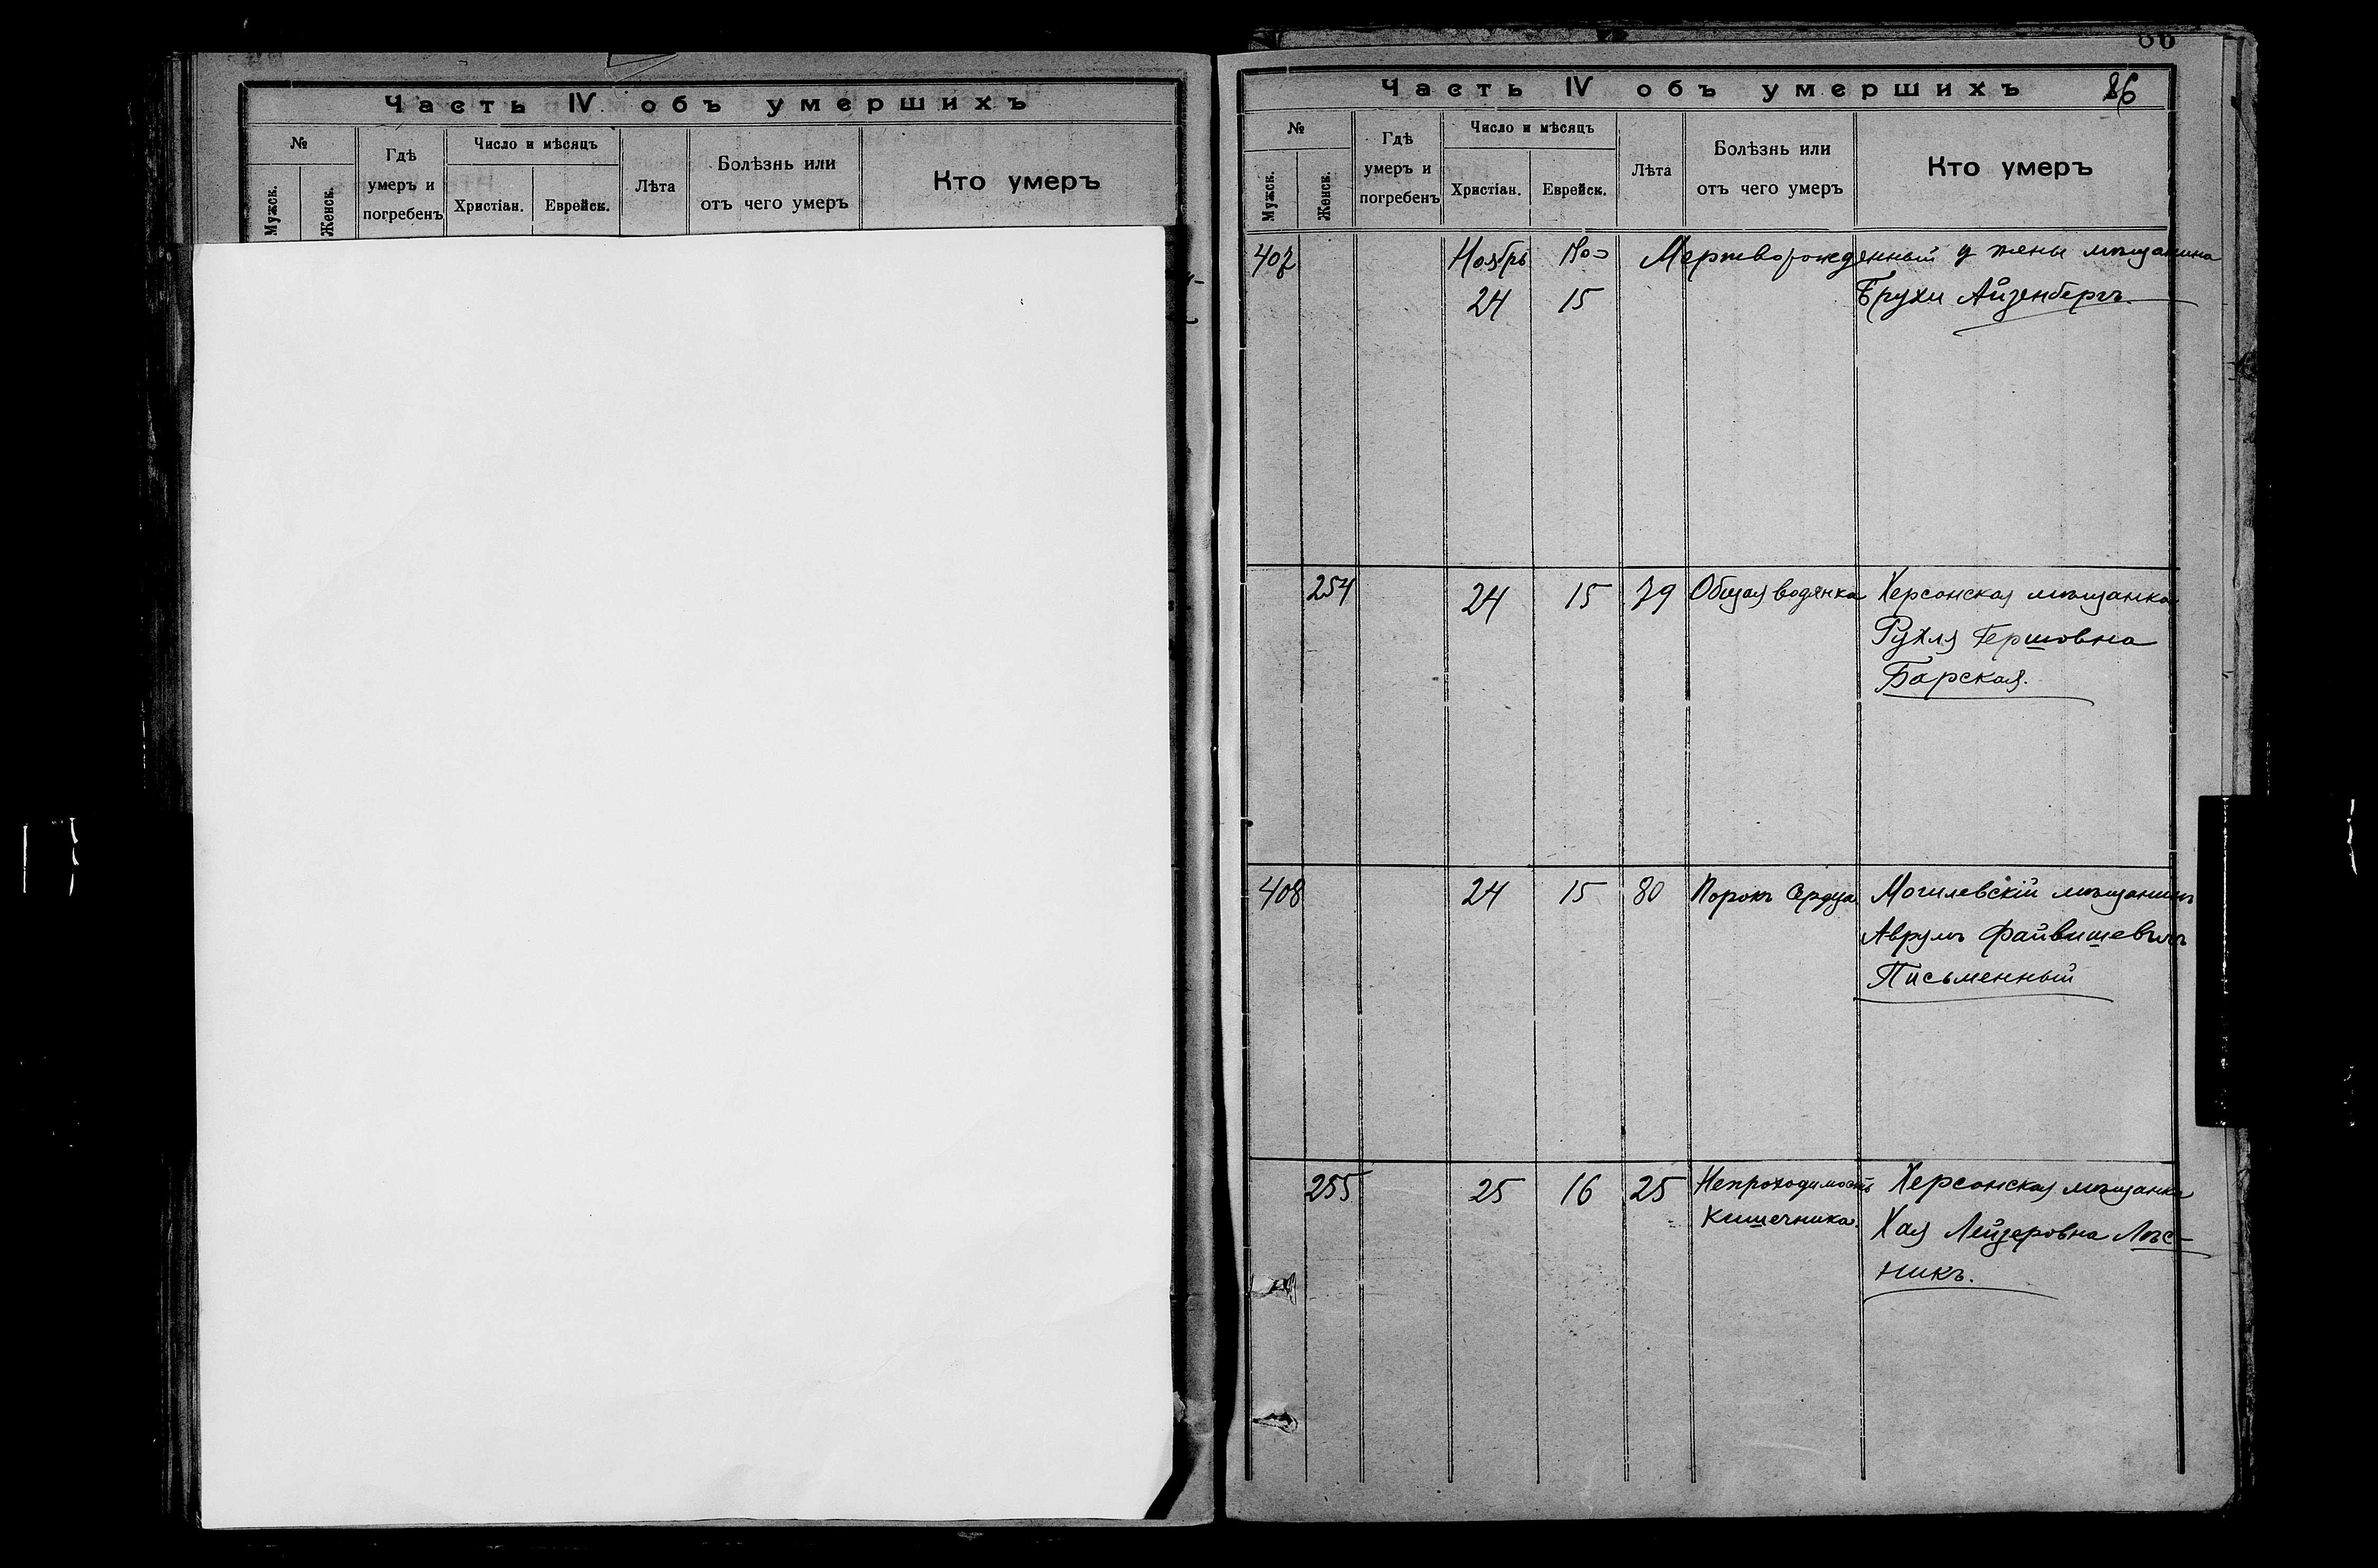 Часть IV объ умершихъ
№
Мужск.
Женск.
Гдѣ
умеръ и
погребенъ
Число и мѣсяцъ
Христіан.
Еврейск.
Лѣта
Болѣзнь или
отъ чего умеръ
Кто умеръ
86
Часть IV объ умершихъ 86
№
Мужск.
Женск.
Гдѣ
умеръ и
погребенъ
Число и мѣсяцъ
Христіан.
Еврейск.
Лѣта
Болѣзнь или
отъ чего умеръ
Кто умеръ
407 Ноябрь Мертворожденный у жены мѣщанина
24 15 Брухи Айзенбергъ.
254 24 15 79 Общая водянка Херсонская мѣщанка
Рухля Гершовна
Барская.
408 24 15 80 Порокъ Сердца Могилевскій мѣщанинъ
Аврумъ Файвишевичъ
Письменный
255 25 16 25 Непроходимость Херсонская мѣщанка
кишечника. Хая Лейзеровна Лѣс-
никъ.